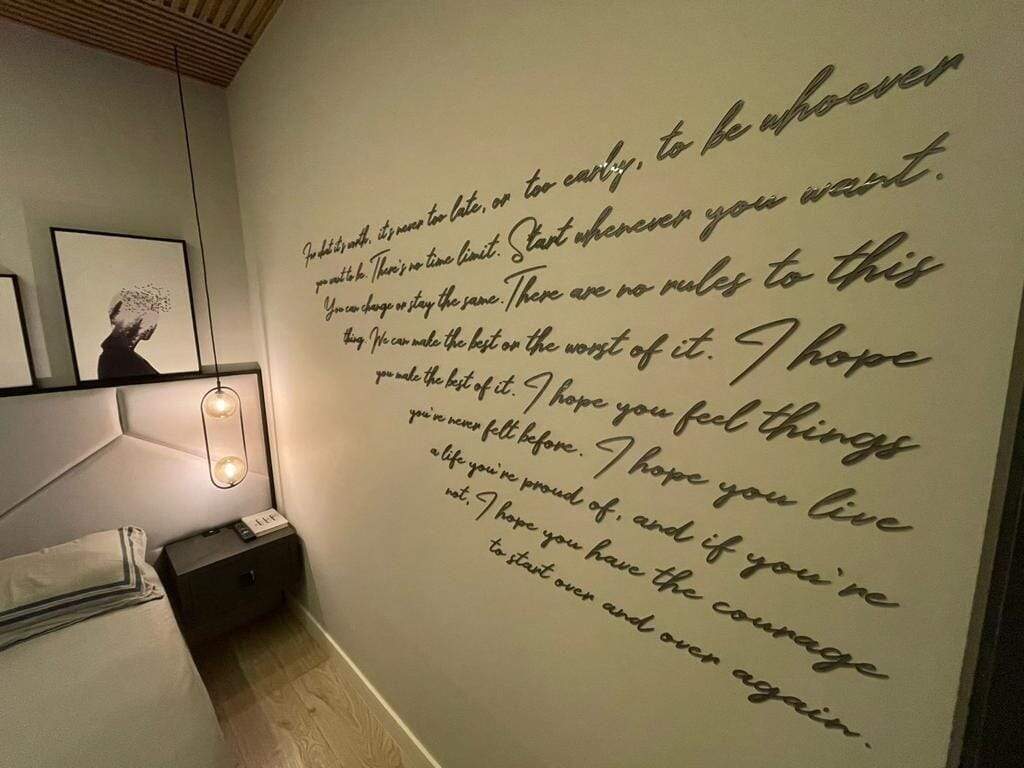 For what it's worth, it's never too late, or too early, to be whoever
you want to be. There's no time limit. Start whenever you want.
You can change or stay the same. There are no rules to this
thing. We can make the best or the worst of it. I hope
you make the best of it. I hope you feel things
you've never felt before. I hope you live
a life you're proud of, and if you're
not, I hope you have the courage
to start over and over again.